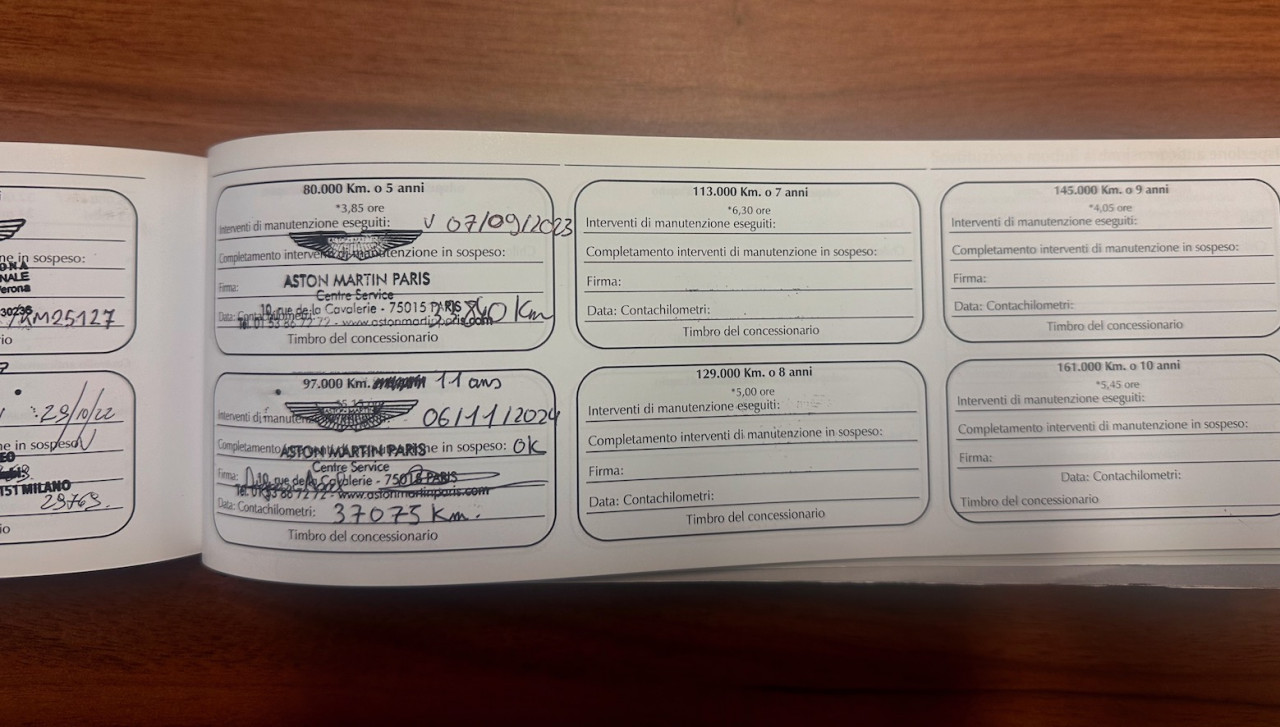 ne in sospeso:
ONA
NALE
erona
30236
KM25127
io
29/10/22
ne in sospeso V
EO
151 MILANO
io
80.000 Km. o 5 anni
*3,85 ore
Interventi di manutenzione eseguiti: V 07/09/2023
Completamento interventi di manutenzione in sospeso:
ASTON MARTIN PARIS
Firma:
Centre Service
10, rue de la Cavalerie - 75015 PARIS
Data: Contachilometri: 840 Km
Tél. 01 53 86 72 72 - www.astonmartinparis.com
Timbro del concessionario
97.000 Km. 11 ans
Interventi di manuten 06/11/2024
Completamento ne in sospeso: OK
ASTON MARTIN PARIS
Centre Service
Firma:
10, rue de la Cavalerie - 75015 PARIS
Tél. 01 53 86 72 72 - www.astonmartinparis.com
Data: Contachilometri: 37075 Km.
Timbro del concessionario
113.000 Km. o 7 anni
*6,30 ore
Interventi di manutenzione eseguiti:
Completamento interventi di manutenzione in sospeso:
Firma:
Data: Contachilometri:
Timbro del concessionario
129.000 Km. o 8 anni
*5,00 ore
Interventi di manutenzione eseguiti:
Completamento interventi di manutenzione in sospeso:
Firma:
Data: Contachilometri:
Timbro del concessionario
145.000 Km. o 9 anni
*4,05 ore
Interventi di manutenzione eseguiti:
Completamento interventi di manutenzione in sospeso:
Firma:
Data: Contachilometri:
Timbro del concessionario
161.000 Km. o 10 anni
*5,45 ore
Interventi di manutenzione eseguiti:
Completamento interventi di manutenzione in sospeso:
Firma:
Data: Contachilometri:
Timbro del concessionario